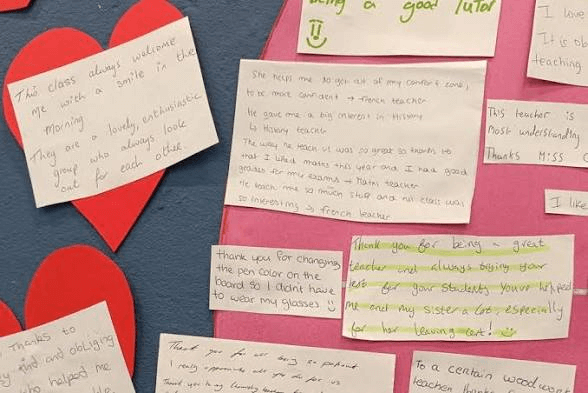 This class always welcome
me with a smile in the
morning
They are a lovely, enthusiastic
group who always look
out for each other.
being a good Tutor
I love
It is ob
teaching
She helps me to get out of my comfort zone,
to be more confident → french teacher
He gave me a big interest in History
↳ History teacher
The way he teach us was so great so thanks to
that I liked maths this year and I had good
grades for my exams → Maths teacher
He teach me so much stuff and his class was
so interesting → french teacher
This teacher is
most understanding
Thanks Miss C
I like
thank you for changing
the pen color on the
board so I didn't have
to wear my glasses
Thank you for being a great
teacher and always trying your
best for your students you've helped
me and my sister a lot, especially
for her leaving cert!
Thanks to
kind and obliging
who helped me
Thank you for being so
I really appreciate all you do for us
Thank you to my
To a certain woodwork
teacher thanks